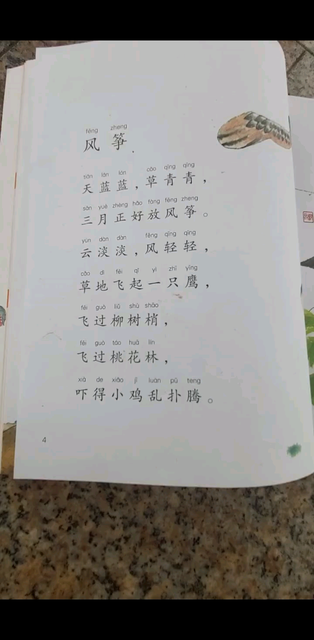 fēng zheng
风筝
tiān lán lán cǎo qīng qīng
天蓝蓝，草青青，
sān yuè zhèng hǎo fàng fēng zheng
三月正好放风筝。
yún dàn dàn fēng qīng qīng
云淡淡，风轻轻，
cǎo dì fēi qǐ yì zhī yīng
草地飞起一只鹰，
fēi guò liǔ shù shāo
飞过柳树梢，
fēi guò táo huā lín
飞过桃花林，
xià de xiǎo jī luàn pū teng
吓得小鸡乱扑腾。
4